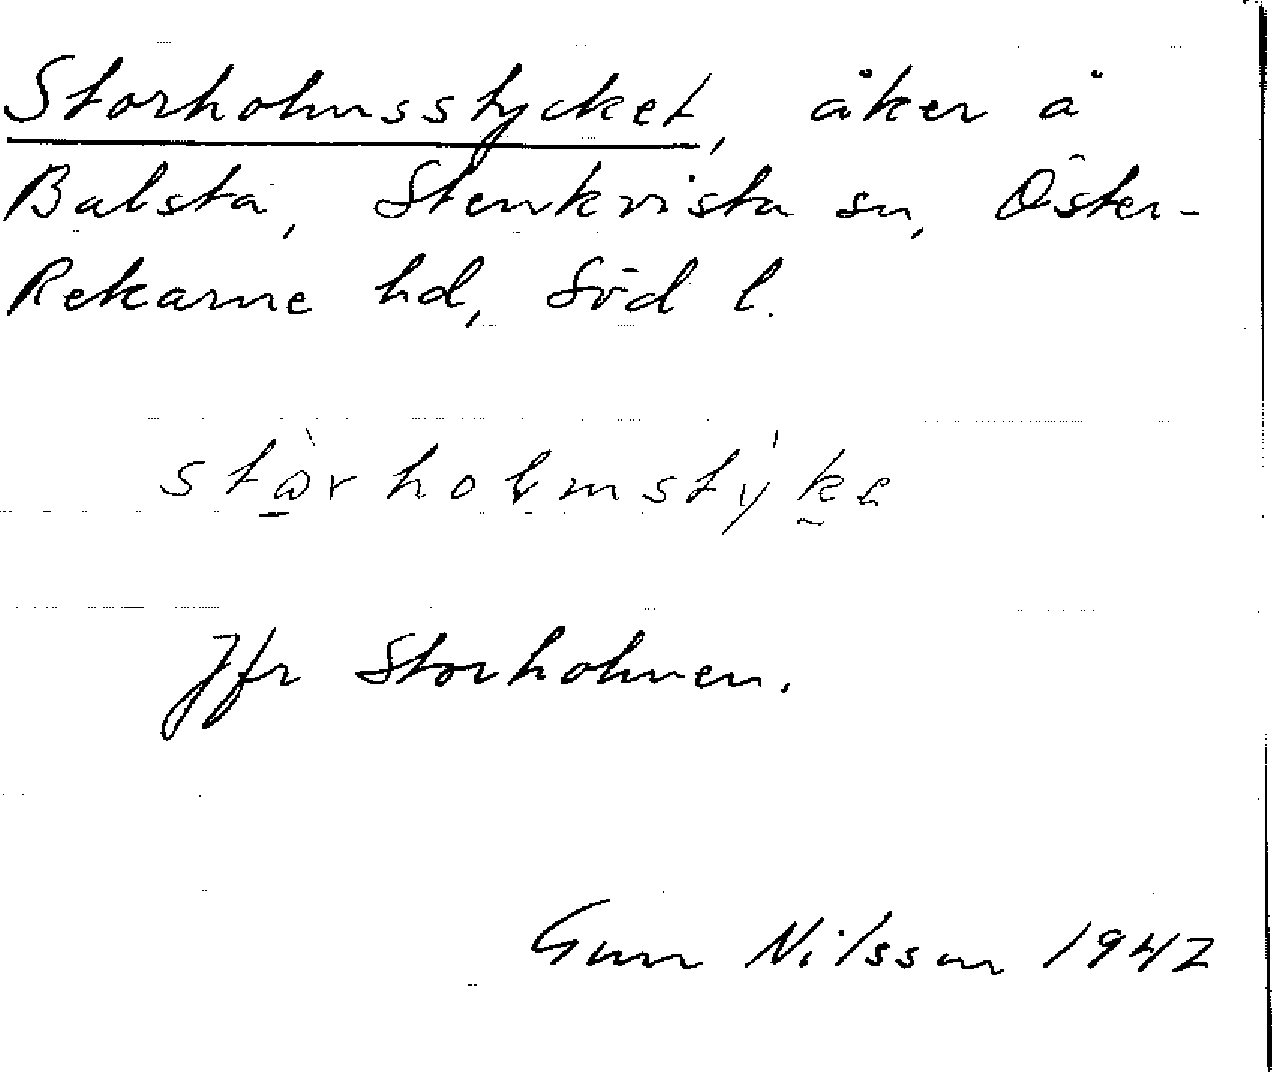 Storholmsstycket, åker å
Balsta, Stenkvista sn, Öster-
Rekarne hd, Söd l.
stòrholmstýke
Jfr Storholmen.
Gun Nilsson 1942